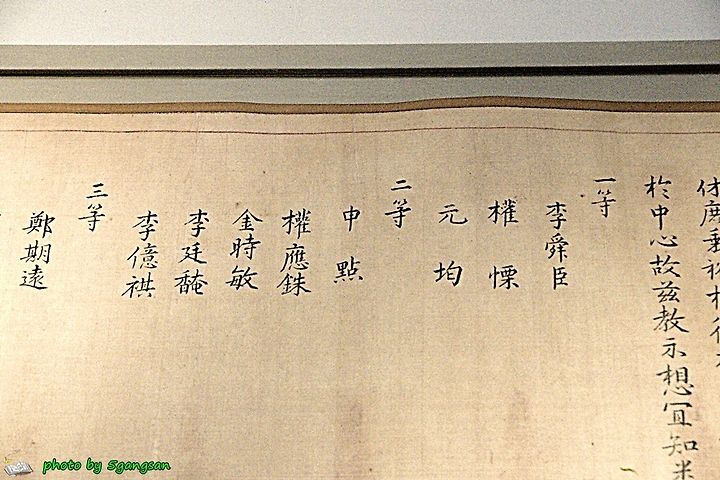 於中心故玆敎示想宜知
一等
李舜臣
權慄
元均
二等
申點
權應銖
金時敏
李廷馣
李億祺
三等
鄭期遠
photo by Sgangsan